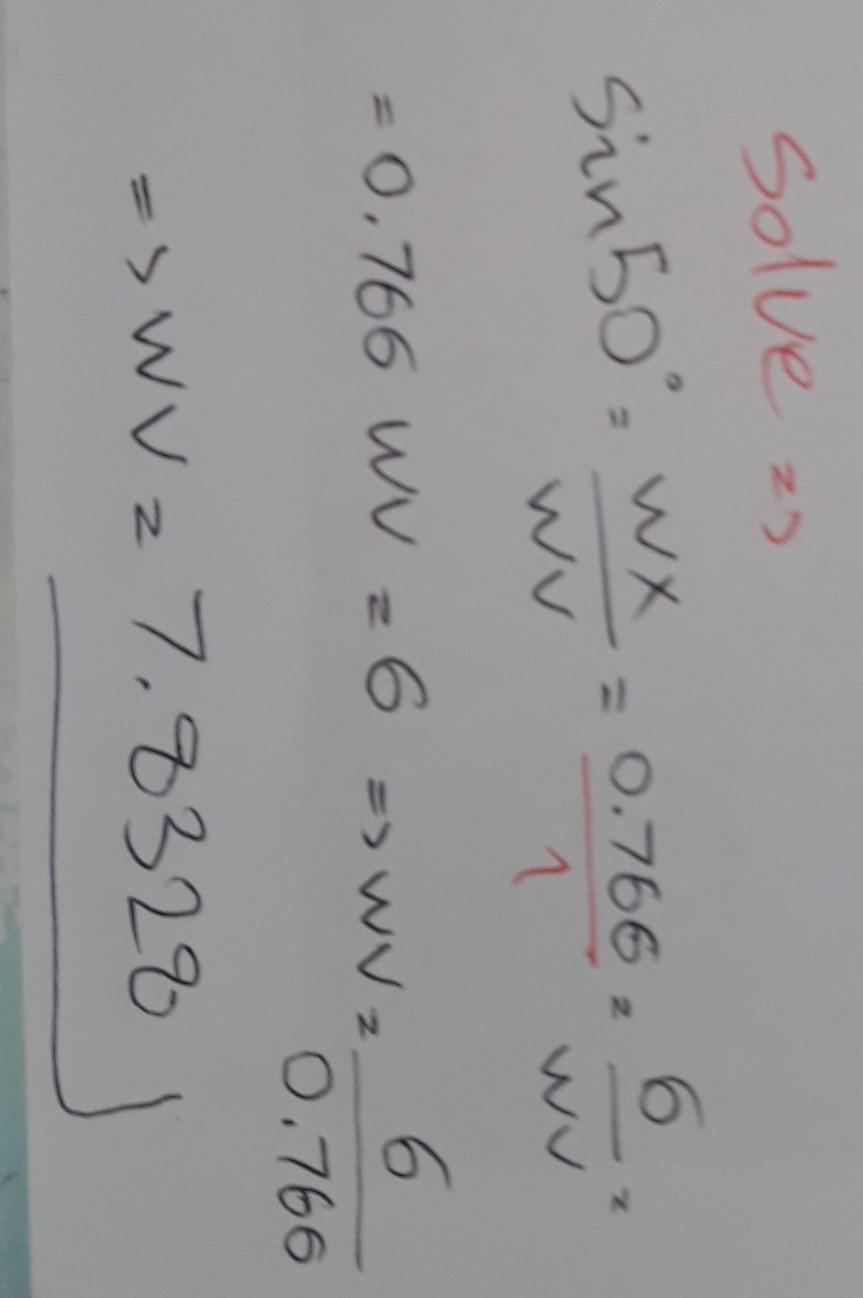 Solve =>
sin50° = WX/WV = 0.766/1 = 6/WV =
= 0.766 WV = 6 => WV = 6/0.766
=> WV = 7.8328